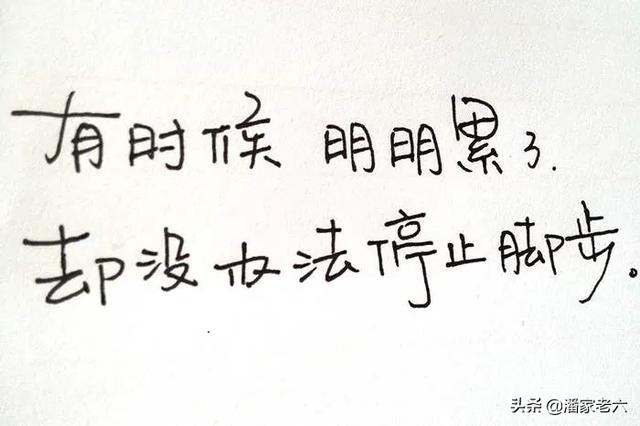 有时候 明明累了.
却没办法停止脚步。
头条 @潘家老六